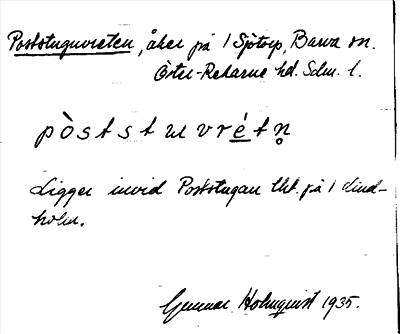 Poststuguvreten, åker på 1 Sjötorp, Barva sn.
Öster-Rekarne hd. Sdm. l.
pòststuvrétn̥
Ligger invid Poststugan lht. på 1 Lind-
holm.
Gunnar Holmquist 1935.